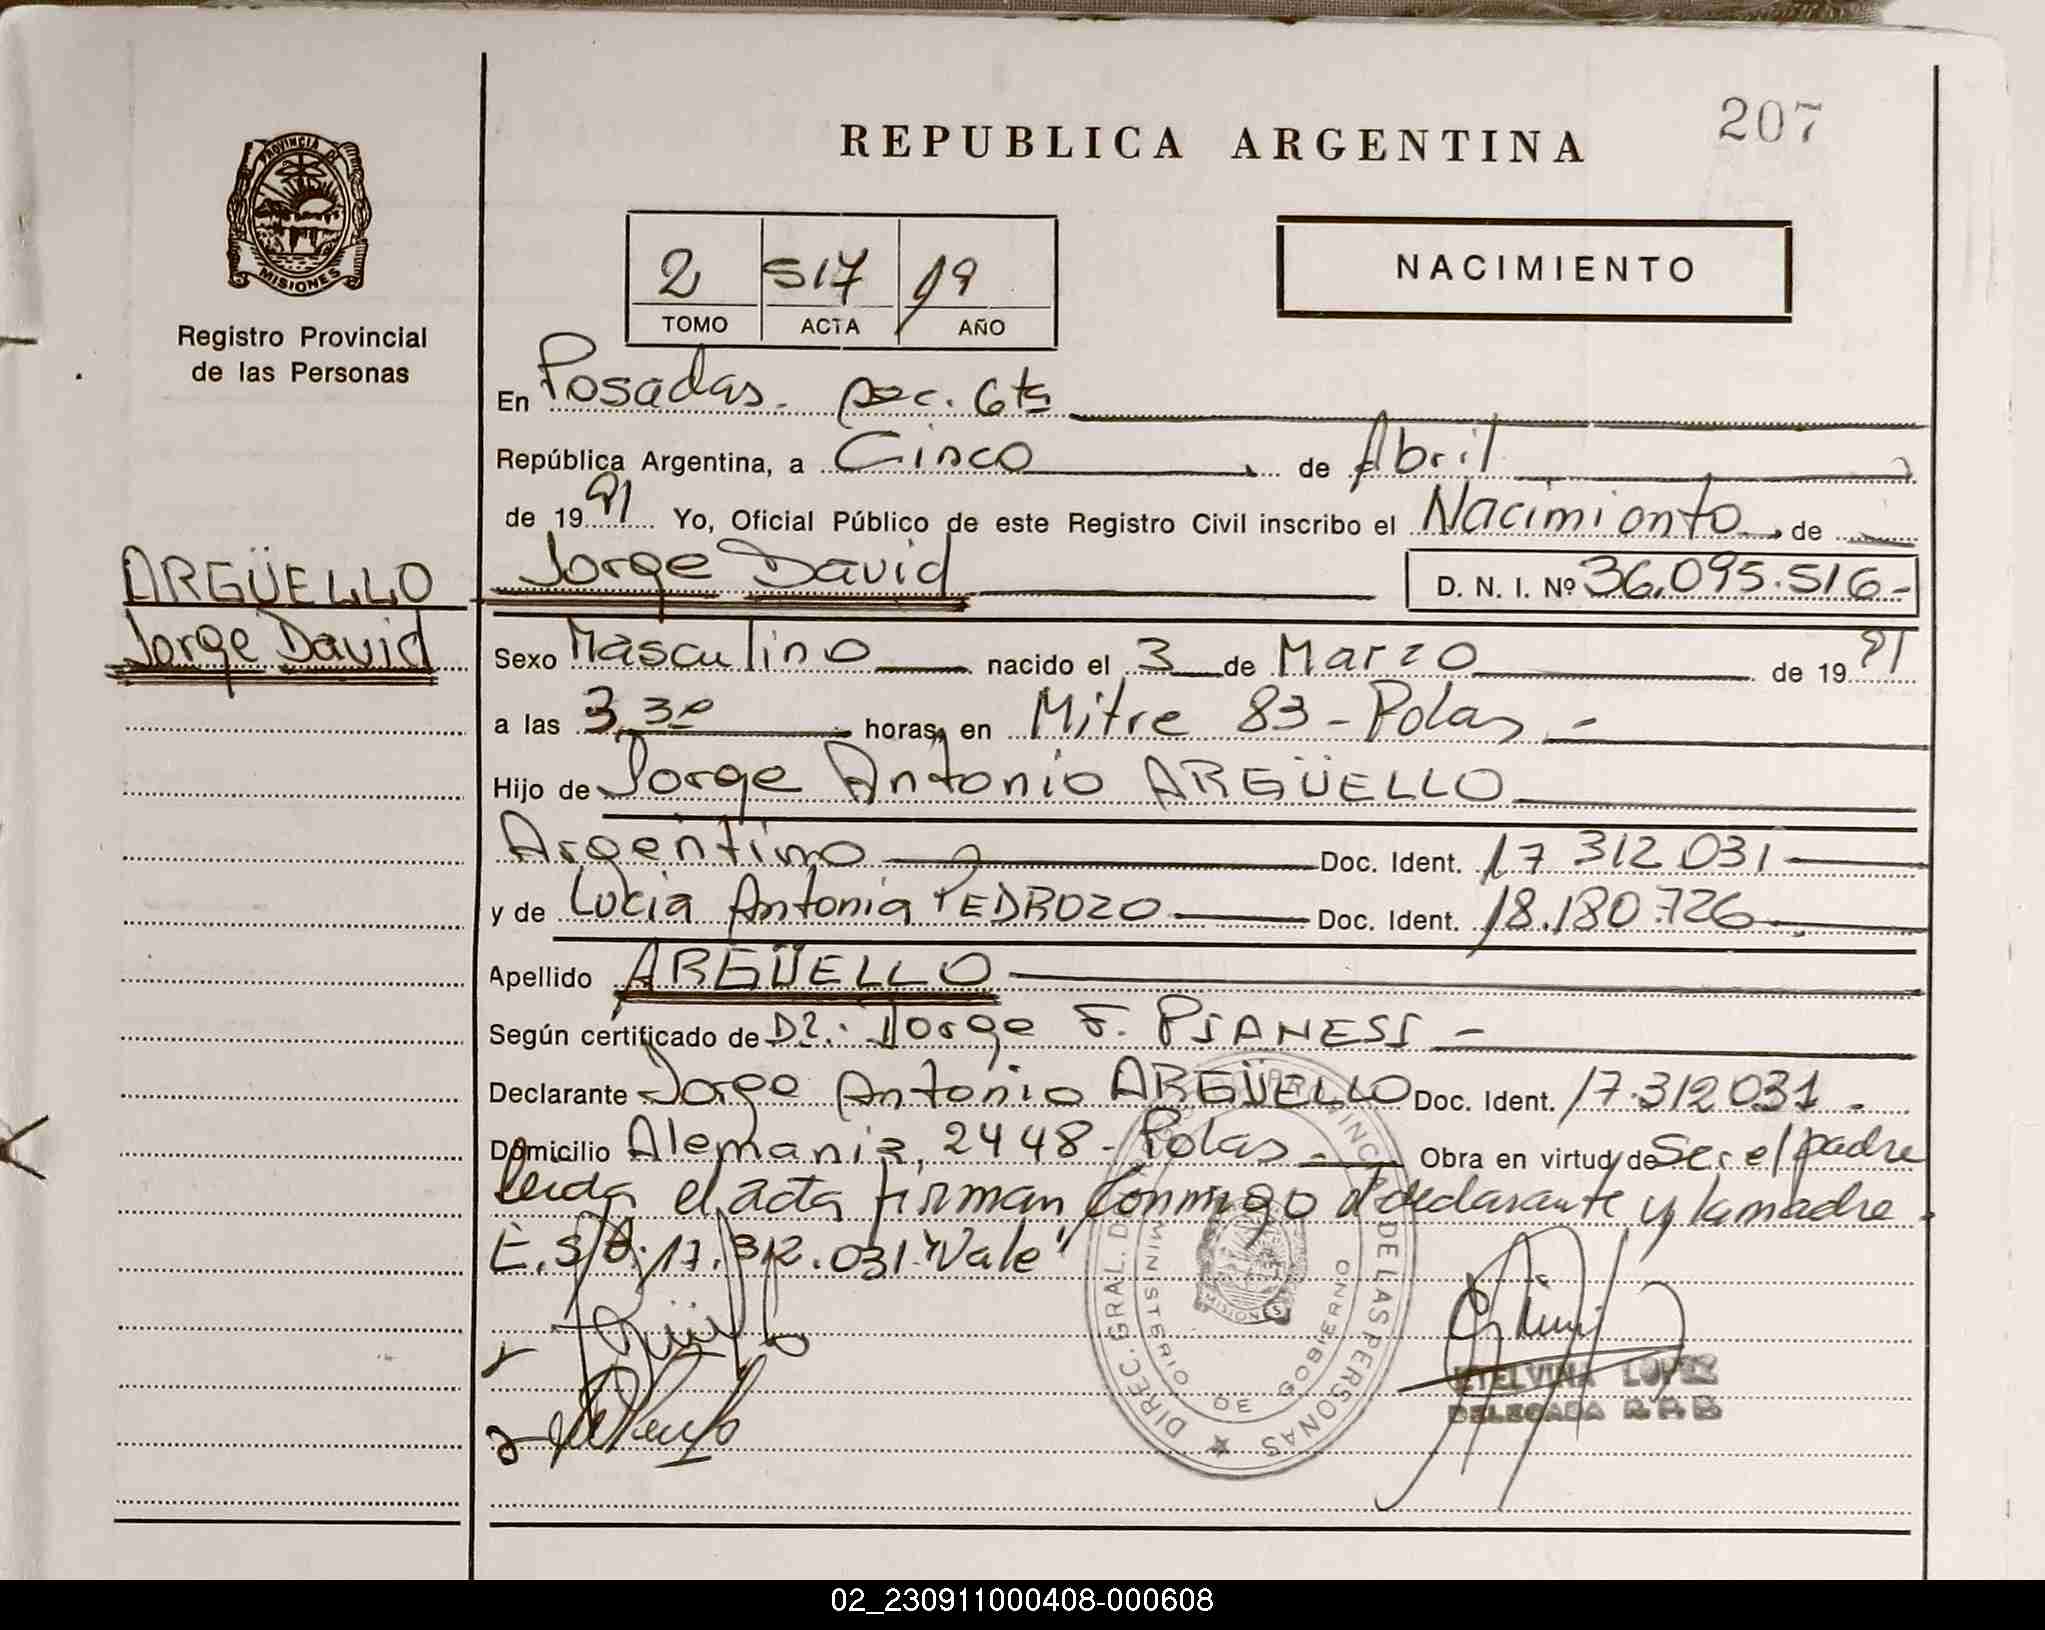 207
REPUBLICA ARGENTINA
PROVINCIA DE
MISIONES
Registro Provincial
de las Personas
NACIMIENTO
2 517 19
TOMO ACTA AÑO
En Posadas. sec. 6ta
República Argentina, a Cinco de Abril
de 1991 Yo, Oficial Público de este Registro Civil inscribo el Nacimiento de
ARGÜELLO
Jorge David
Jorge David D. N. I. Nº 36.095.516-
Sexo Masculino nacido el 3 de Marzo de 1991
a las 3,30 horas, en Mitre 83 - Pdas -
Hijo de Jorge Antonio ARGÜELLO
Argentino Doc. Ident. 17 312 031
y de Lucia Antonia PEDROZO Doc. Ident. 18.180.726
Apellido ARGÜELLO
Según certificado de Dr. Jorge F. PIANESI -
Declarante Jorge Antonio ARGÜELLO Doc. Ident. 17.312 031 -
Domicilio Alemania, 2448 - Pdas - Obra en virtud de Ser el padre
leida el acta firman conmigo el declarante y la madre
E.S/R: 17.312.031 "Vale"
DIREC. GRAL. DEL REG. PROVINCIAL DE LAS PERSONAS
MINISTERIO DE GOBIERNO
MISIONES
ETELVINA LOPEZ
DELEGADA R.P.P.
02_230911000408-000608